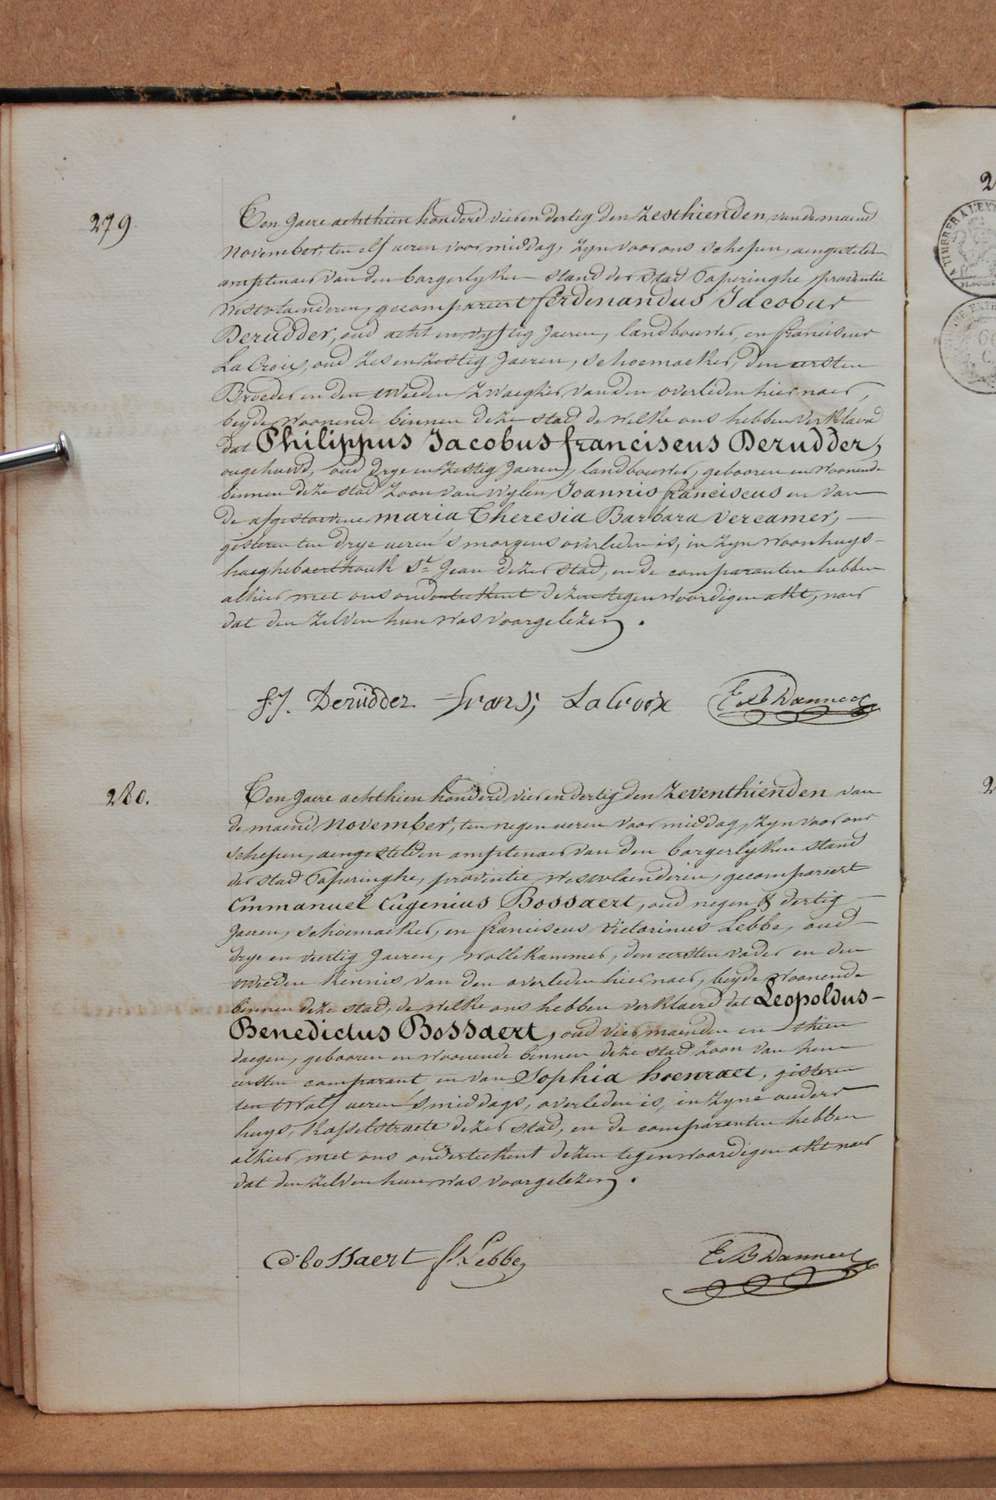 279.
Ten Jaere achthien honderd vier en dertig den zesthienden, van de maend
November, ten elf ueren voor middag, zyn voor ons schepen, aengestelden
amptenaer van den borgerlyken stand der stad Poperinghe, provintie
westvlaenderen, gecompareert Ferdinandus Jacobus
Derudder, oud acht en vyftig Jaeren, landbouwer, en franciscus
LaCroix, oud zes en zestig Jaeren, schoemaeker, den eersten
Broeder en den tweeden zwaegher van den overleden hier naer,
beyde woonende binnen deze stad de welke ons hebben verklaerd
dat Philippus Jacobus franciscus Derudder,
ongehuwd, oud drye en zestig Jaeren, landbouwer, gebooren en woonende
binnen deze stad zoon van wylen Joannis franciscus en van
de afgestorvene maria Theresia Barbara Vercamer,
gisteren ten drye ueren 's morgens overleden is, in zyn woonhuys
haeghebaerthouk St Jean dezer stad, en de comparanten hebben
alhier met ons onderteekent dezen tegenwoordigen akt, naer
dat den zelven hun was voorgelezen.
f. J. Derudder frans LaCroix
280.
Ten Jaere achthien honderd vier en dertig den zeventhienden van
de maend November, ten negen ueren voor middag, zyn voor ons
schepen, aengestelden amptenaer van den borgerlyken stand
der stad Poperinghe, provintie westvlaenderen, gecompareert
Emmanuel Eugenius Bossaert, oud negen & dertig
Jaeren, schoemaeker, en franciscus victorinus Lebbe, oud
drye en viertig Jaeren, wollekammer, den eersten vader en den
tweeden kennis van den overleden hier naer, beyde woonende
binnen deze stad, de welke ons hebben verklaerd dat Leopoldus
Benedictus Bossaert, oud vier maenden en thien
daegen, gebooren en woonende binnen deze stad zoon van hem
eersten comparant en van Sophia hoenraet, gisteren
ten twalf ueren 's middags, overleden is, in zyne ouders
huys, Kasselstraete dezer stad, en de comparanten hebben
alhier met ons onderteekent dezen tegenwoordigen akt naer
dat den zelven hun was voorgelezen.
Bossaert f. Lebbe